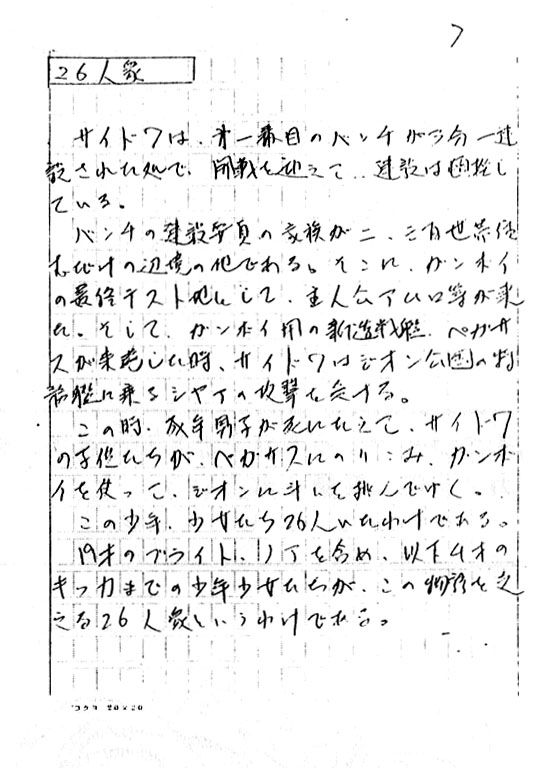 7
26人衆
サイド7は、第一番目のバンチが3分一建
設された処で、開戦を迎えて、建設は 
ている。
バンチの建設要員の家族が二、三百世帯住
むだけの辺境の地である。そこに、ガンボイ
の最終テスト地にして、主人公アムロ等が来
た。そして、ガンボイ用の新造戦艦、ペガサ
スが来港した時、サイド7はジオン公国の特
務艦に乗るシャアの攻撃を受ける。
この時、成年男子が死にたえて、サイド7
の子供たちが、ペガサスにのりこみ、ガンボ
イを使って、ジオンに斗いを挑んでゆく。
この少年、少女たち26人いたわけである。
19才のブライト、リノアを含め、以下4才の
キッカまでの少年少女たちが、この物語を支
える26人衆というわけである。
コクヨ 20×20